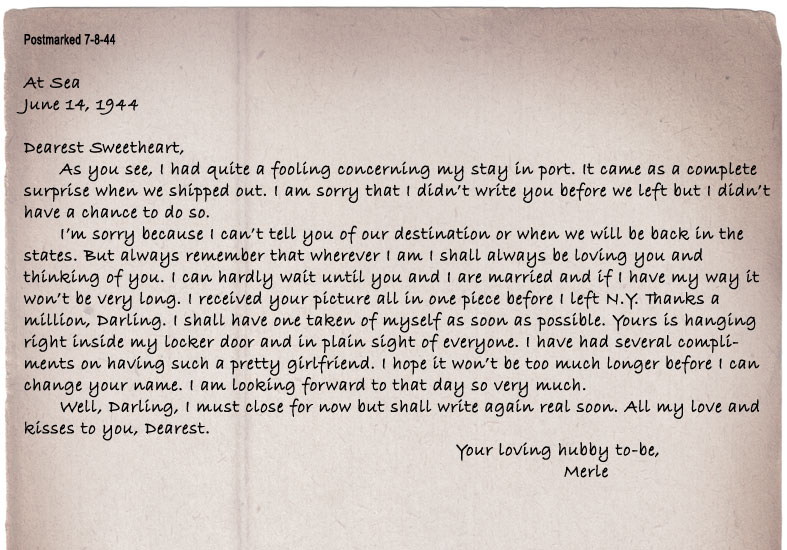 Postmarked 7-8-44
At Sea
June 14, 1944
Dearest Sweetheart,
As you see, I had quite a fooling concerning my stay in port. It came as a complete
surprise when we shipped out. I am sorry that I didn't write you before we left but I didn't
have a chance to do so.
I'm sorry because I can't tell you of our destination or when we will be back in the
states. But always remember that wherever I am I shall always be loving you and
thinking of you. I can hardly wait until you and I are married and if I have my way it
won't be very long. I received your picture all in one piece before I left N.Y. Thanks a
million, Darling. I shall have one taken of myself as soon as possible. Yours is hanging
right inside my locker door and in plain sight of everyone. I have had several compli-
ments on having such a pretty girlfriend. I hope it won't be too much longer before I can
change your name. I am looking forward to that day so very much.
Well, Darling, I must close for now but shall write again real soon. All my love and
kisses to you, Dearest.
Your loving hubby to-be,
Merle